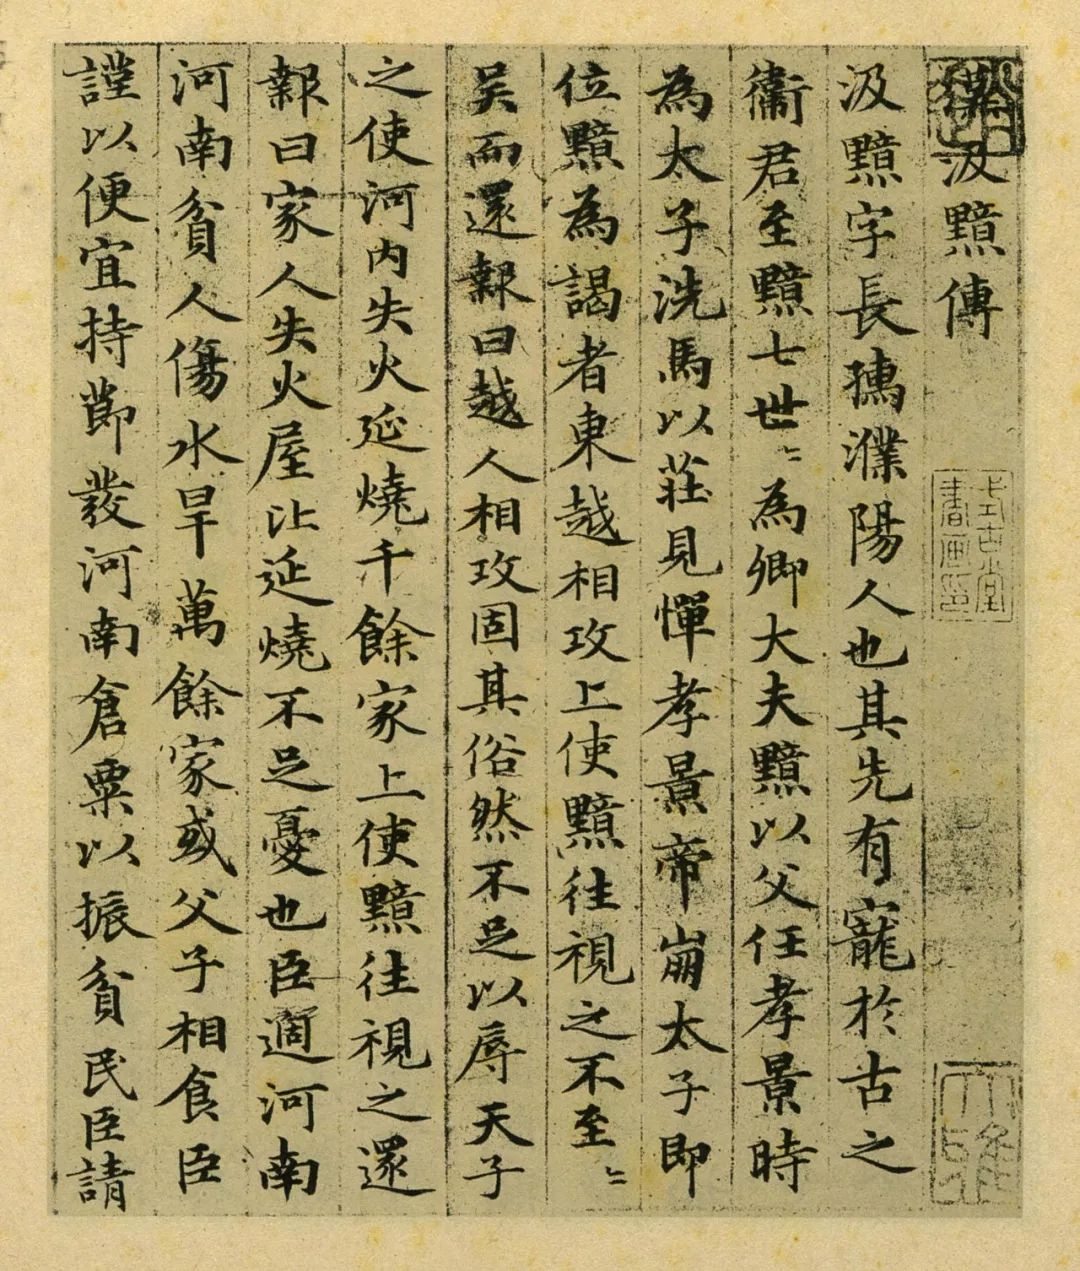 漢汲黯傳
汲黯字長孺濮陽人也其先有寵於古之
衞君至黯七世〻為卿大夫黯以父任孝景時
為太子洗馬以莊見憚孝景帝崩太子即
位黯為謁者東越相攻上使黯往視之不至〻
吴而還報曰越人相攻固其俗然不足以辱天子
之使河内失火延燒千餘家上使黯往視之還
報曰家人失火屋比延燒不足憂也臣適河南
河南貧人傷水旱萬餘家或父子相食臣
謹以便宜持節發河南倉粟以振貧民臣請
式古堂
書画印